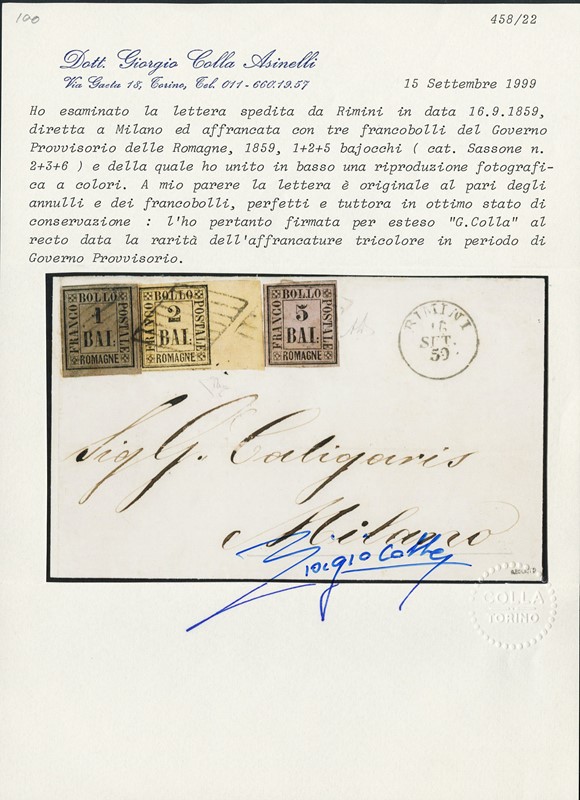 100
458/22
Dott. Giorgio Colla Asinelli
Via Gaeta 18, Torino, Tel. 011 - 660.19.57
15 Settembre 1999
Ho esaminato la lettera spedita da Rimini in data 16.9.1859,
diretta a Milano ed affrancata con tre francobolli del Governo
Provvisorio delle Romagne, 1859, 1+2+5 bajocchi ( cat. Sassone n.
2+3+6 ) e della quale ho unito in basso una riproduzione fotografi-
ca a colori. A mio parere la lettera è originale al pari degli
annulli e dei francobolli, perfetti e tuttora in ottimo stato di
conservazione : l'ho pertanto firmata per esteso "G.Colla" al
recto data la rarità dell'affrancature tricolore in periodo di
Governo Provvisorio.
FRANCO BOLLO POSTALE
1
BAI.
ROMAGNE
FRANCO BOLLO POSTALE
2
BAI.
ROMAGNE
FRANCO BOLLO POSTALE
5
BAI.
ROMAGNE
RIMINI
16
SET.
59
Sig G. Caligaris
Milano
Giorgio Colla
COLLA
TORINO